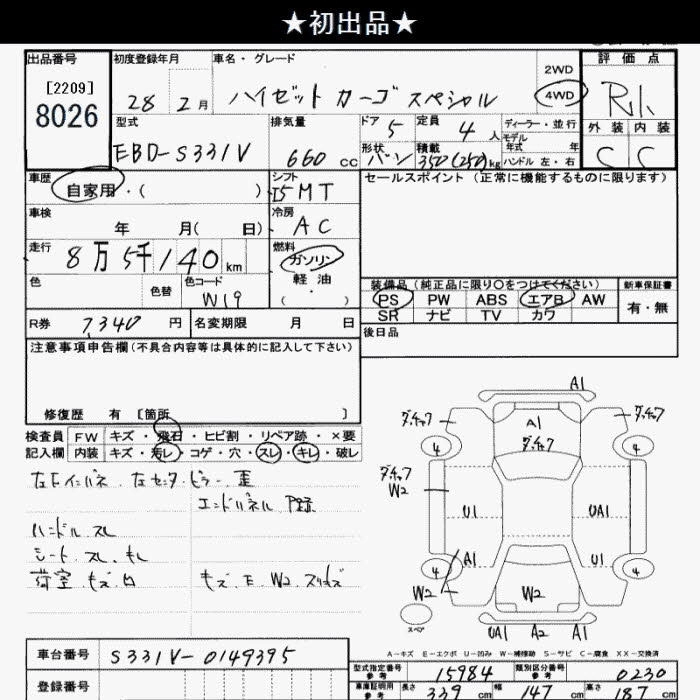 ★初出品★
出品番号 初度登録年月 車名・グレード 評価点
[2209]
8026
28 2月 ハイゼット カーゴ スペシャル 2WD 4WD
型式 排気量 ドア 定員 ディーラー・並行
EBD-S331V 660 cc 5 4人 モデル 年式 年
形状 積載 外装 内装
バン 350(250)kg ハンドル 左・右 C C
車歴 自家用・( ) シフト I5 MT セールスポイント (正常に機能するものに限ります)
車検 年 月( 日) 冷房 AC
走行 8万5千140km 燃料 ガソリン 軽油 ( ・ )
色 色替 色コード W19
装備品(純正品に限り○をつけてください) 新車保証書
PS PW ABS エアB AW 有・無
SR ナビ TV カワ
R券 7,340円 名変期限 月 日 後日品
注意事項申告欄(不具合内容等は具体的に記入して下さい)
修復歴 有 [箇所 ]
検査員 FW キズ・飛石・ヒビ割・リペア跡・×要
記入欄 内装 キズ・汚レ・コゲ・穴・スレ・キレ・破レ
左Fインパネ 左センタピラー 歪
エンドパネル
ハンドル スレ
シート スレ キレ
荷室 キズ 凹 キズ E W2
A1
A1
W2
U1 UA1
A1 U1
4 4
4 4
W2 W2
スペア
UA1 A2 A1
A-キズ E-エクボ U-凹み W-補修跡 S-サビ C-腐食 XX-交換済
車台番号 S331V-0149395
登録番号
型式指定番号 参考 15984 類別区分番号 参考 0230
車庫証明用 参考 長さ 339 cm 幅 147 cm 高さ 187 cm